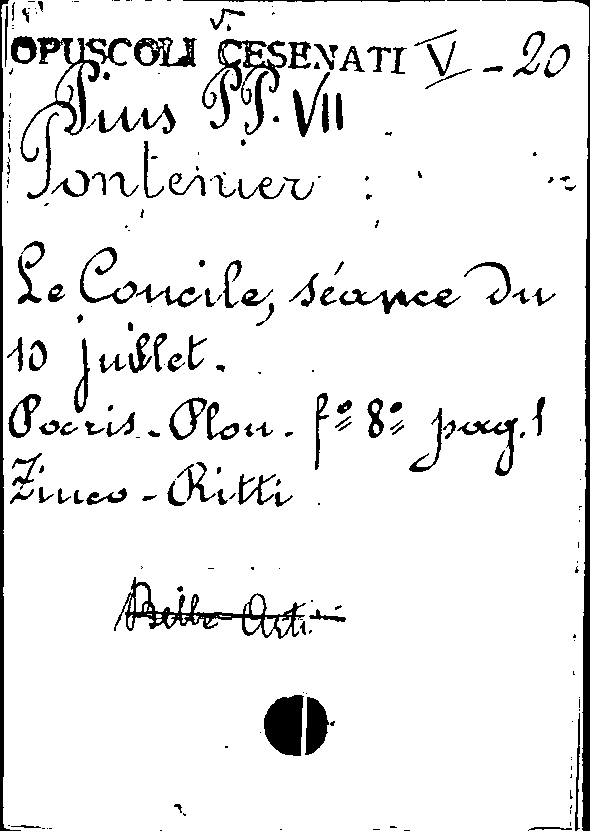 v.
OPUSCOLI CESENATI V - 20
Pius PP. VII
Pontenier :
Le Concile, séance du
10 juillet.
Paris - Plon - fº 8º pag. 1
Zinco - Ritti
Belle Arti